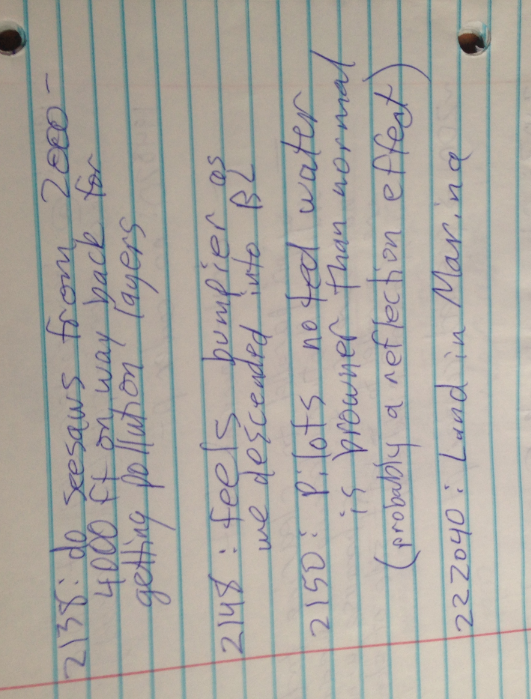 2138: do seesaws from 2000-
4000 ft on way back for
getting pollution layers
2148: feels bumpier as
we descended into BL
2150: Pilots noted water
is browner than normal
(probably a reflection effect)
222040: Land in Marina